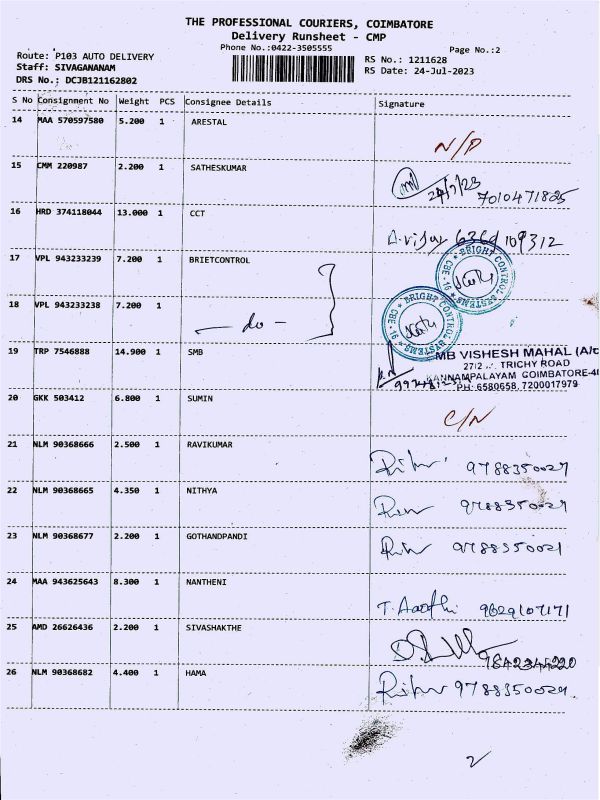 THE PROFESSIONAL COURIERS, COIMBATORE
Delivery Runsheet - CMP
Phone No.:0422-3505555
Page No.:2
Route: P103 AUTO DELIVERY
Staff: SIVAGANANAM
DRS No.: DCJB121162802
RS No.: 1211628
RS Date: 24-Jul-2023
S No Consignment No Weight PCS Consignee Details Signature
14 MAA 570597580 5.200 1 ARESTAL
N/D
15 CMM 220987 2.200 1 SATHESKUMAR
24/7/23
7010471825
16 HRD 374118044 13.000 1 CCT
A.vijay 6369109312
17 VPL 943233239 7.200 1 BRIETCONTROL
BRIGHT CONTROL SYSTEMS * CBE - 16 *
18 VPL 943233238 7.200 1
- do -
BRIGHT CONTROL SYSTEMS * CBE - 16 *
19 TRP 7546888 14.900 1 SMB
MB VISHESH MAHAL (A/c
TRICHY ROAD
KANNAMPALAYAM COIMBATORE-41
PH: 6580658, 7200017979
20 GKK 503412 6.800 1 SUMIN
C/N
21 NLM 90368666 2.500 1 RAVIKUMAR
9788350027
22 NLM 90368665 4.350 1 NITHYA
9788350027
23 NLM 90368677 2.200 1 GOTHANDPANDI
9788350021
24 MAA 943625643 8.300 1 NANTHENI
T. Aarthi 9629107171
25 AMD 26626436 2.200 1 SIVASHAKTHE
9842345220
26 NLM 90368682 4.400 1 HAMA
9788350027.
2